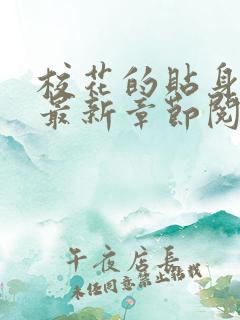 校花的貼身
最新章節閱
午夜店長
未经同意禁止转载